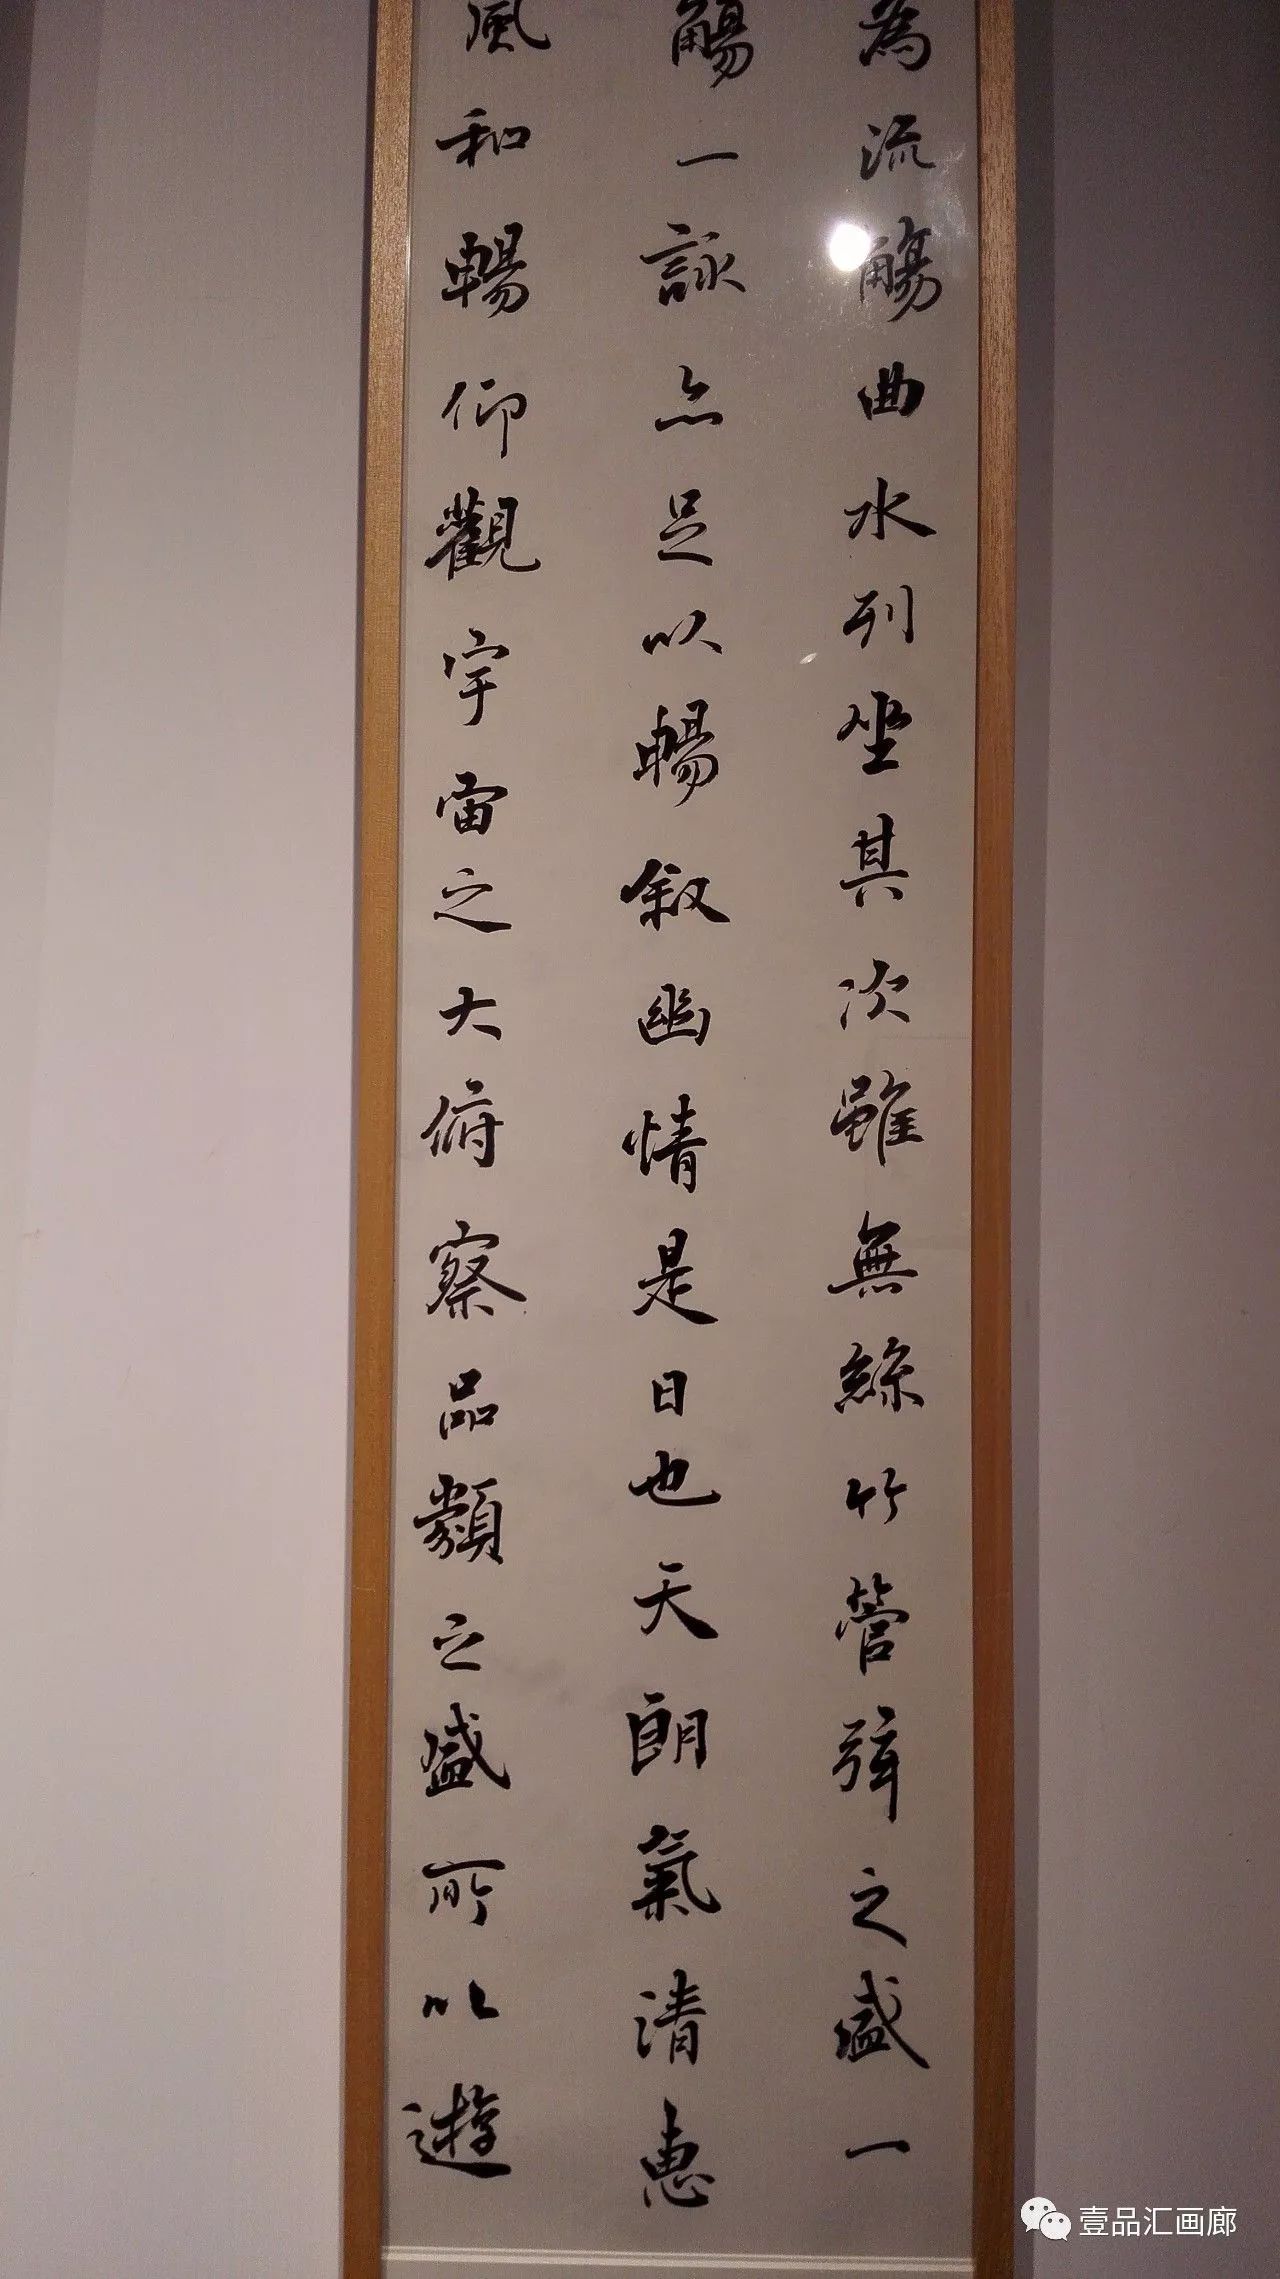 為流觴曲水列坐其次雖無絲竹管弦之盛一
觴一詠亦足以暢叙幽情是日也天朗氣清惠
風和暢仰觀宇宙之大俯察品類之盛所以遊
壹品汇画廊